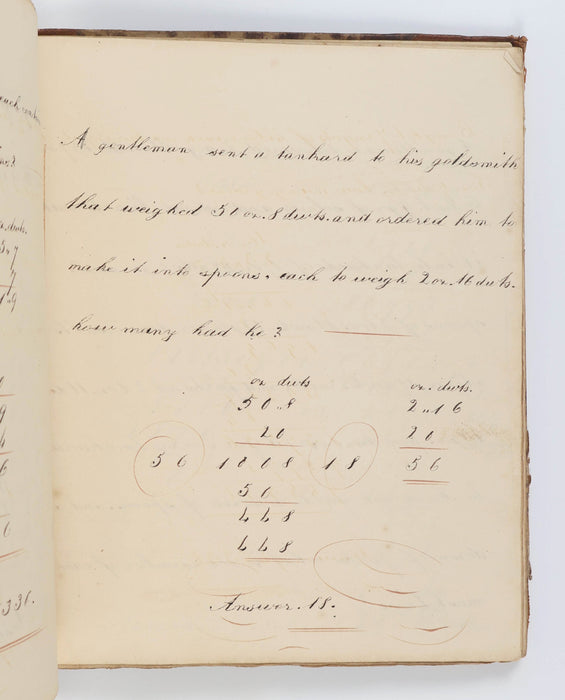 A gentleman sent a tankard to his goldsmith
that weighed 50 oz. 8 dwts. and ordered him to
make it into spoons, each to weigh 2 oz. 16 dwts.
how many had he?
oz dwts
50 „ 8
20
56) 1008 (18
56
448
448
oz. dwts.
2 „ 16
20
56
Answer. 18.
dwts.